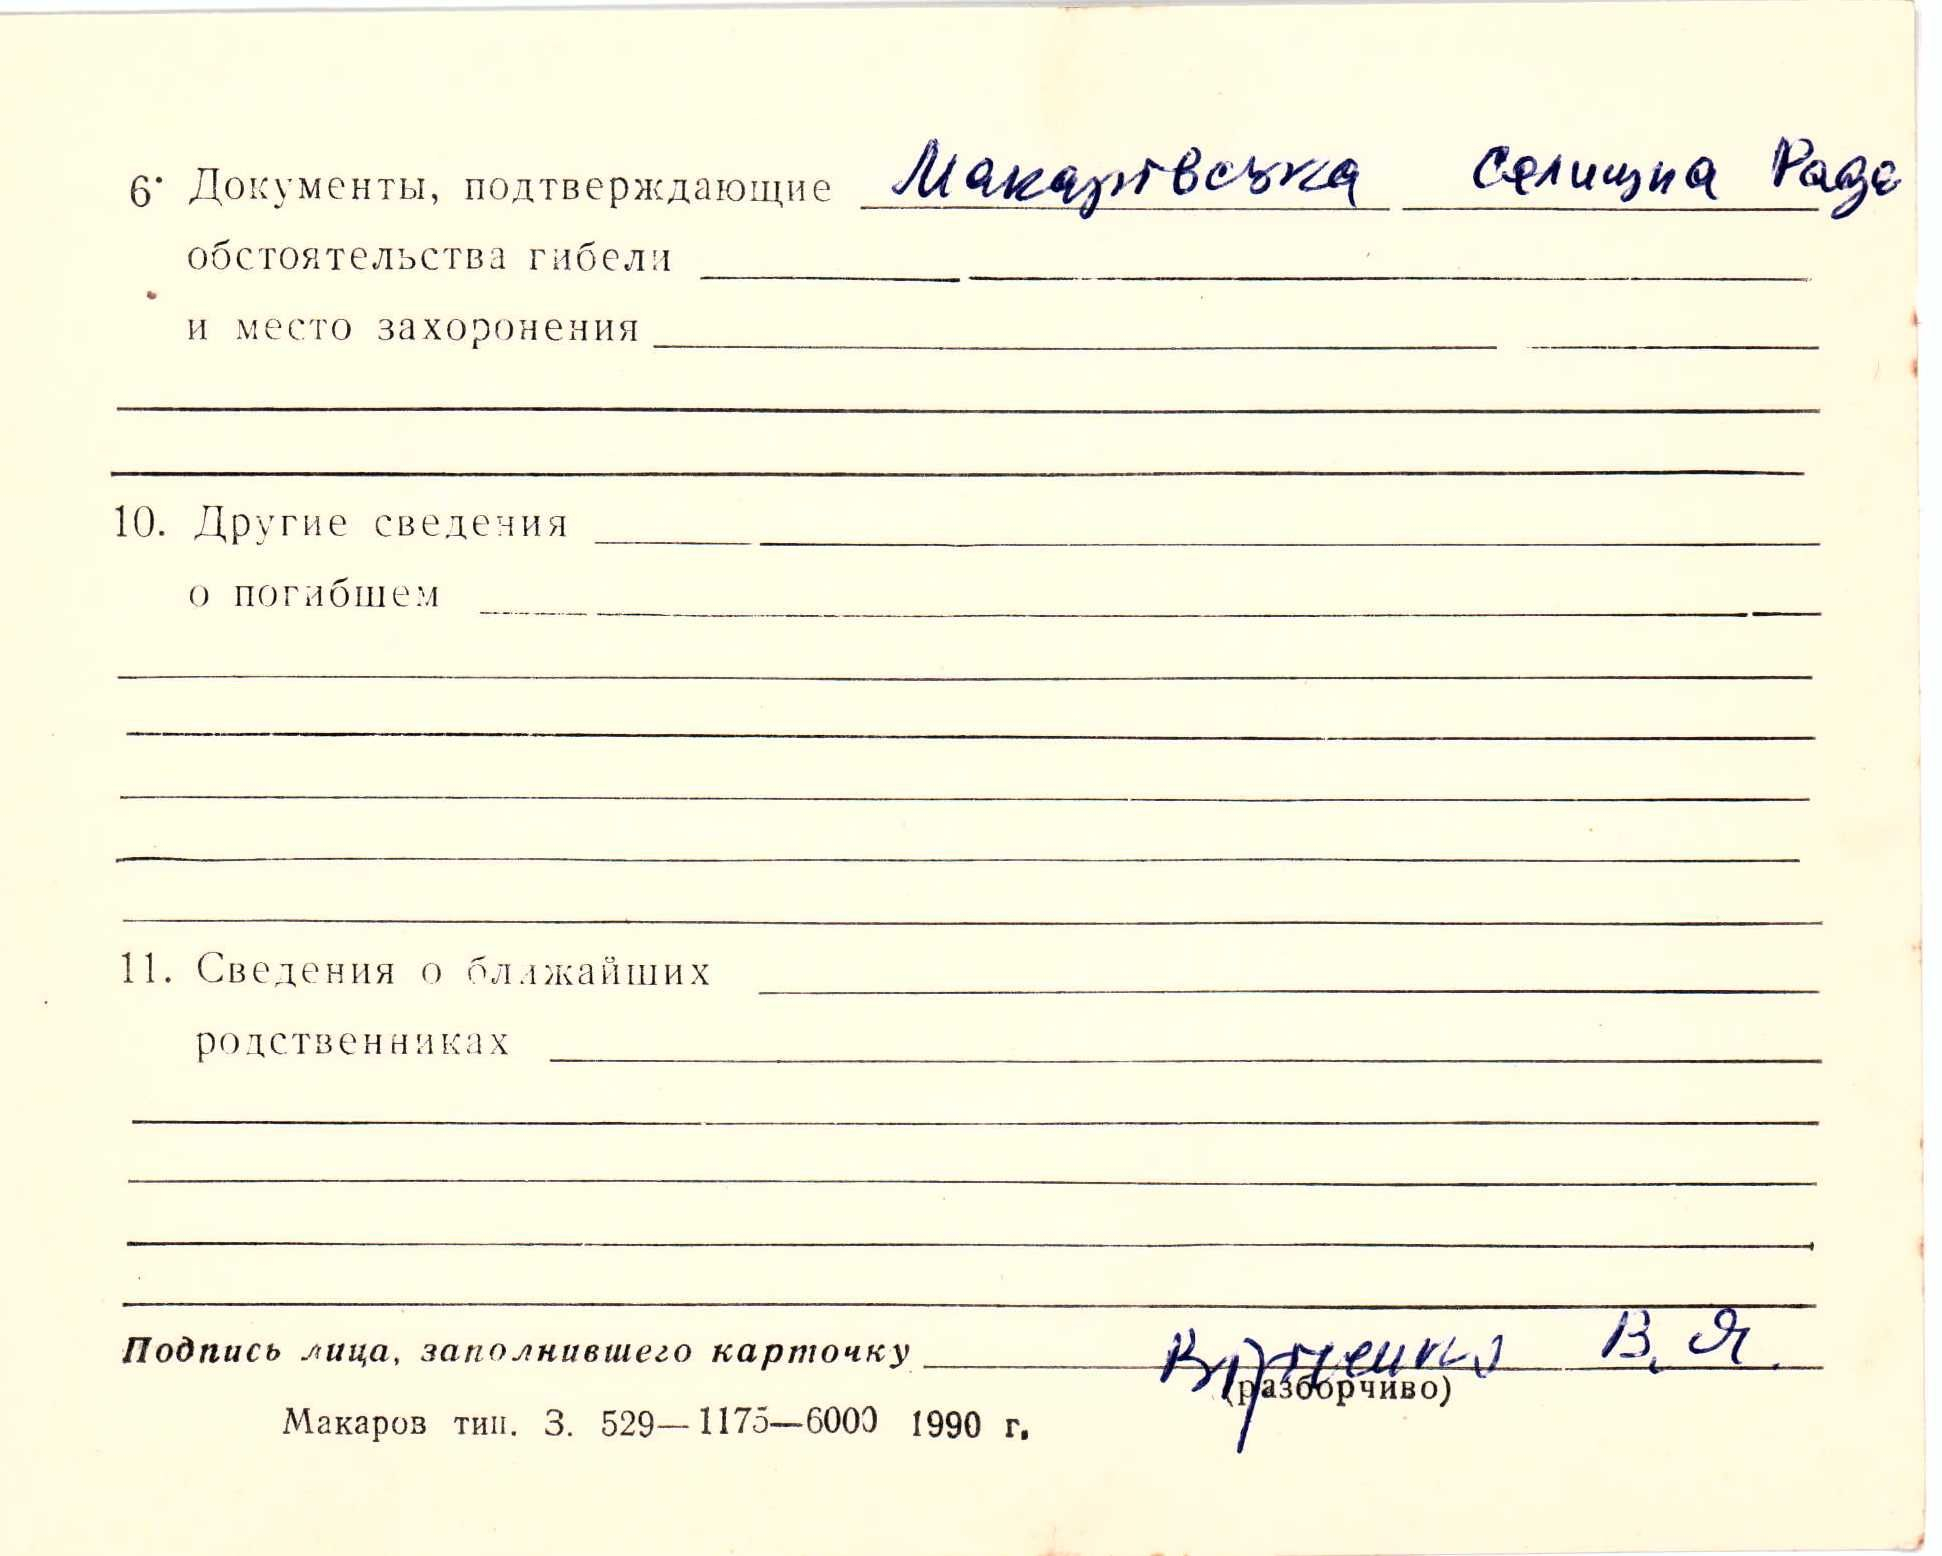 6. Документы, подтверждающие Макарівська Селищна Рада
обстоятельства гибели
и место захоронения
10. Другие сведения
о погибшем
11. Сведения о ближайших
родственниках
Подпись лица, заполнившего карточку В. Я.
(разборчиво)
Макаров тип. З. 529—1175—6000 1990 г.